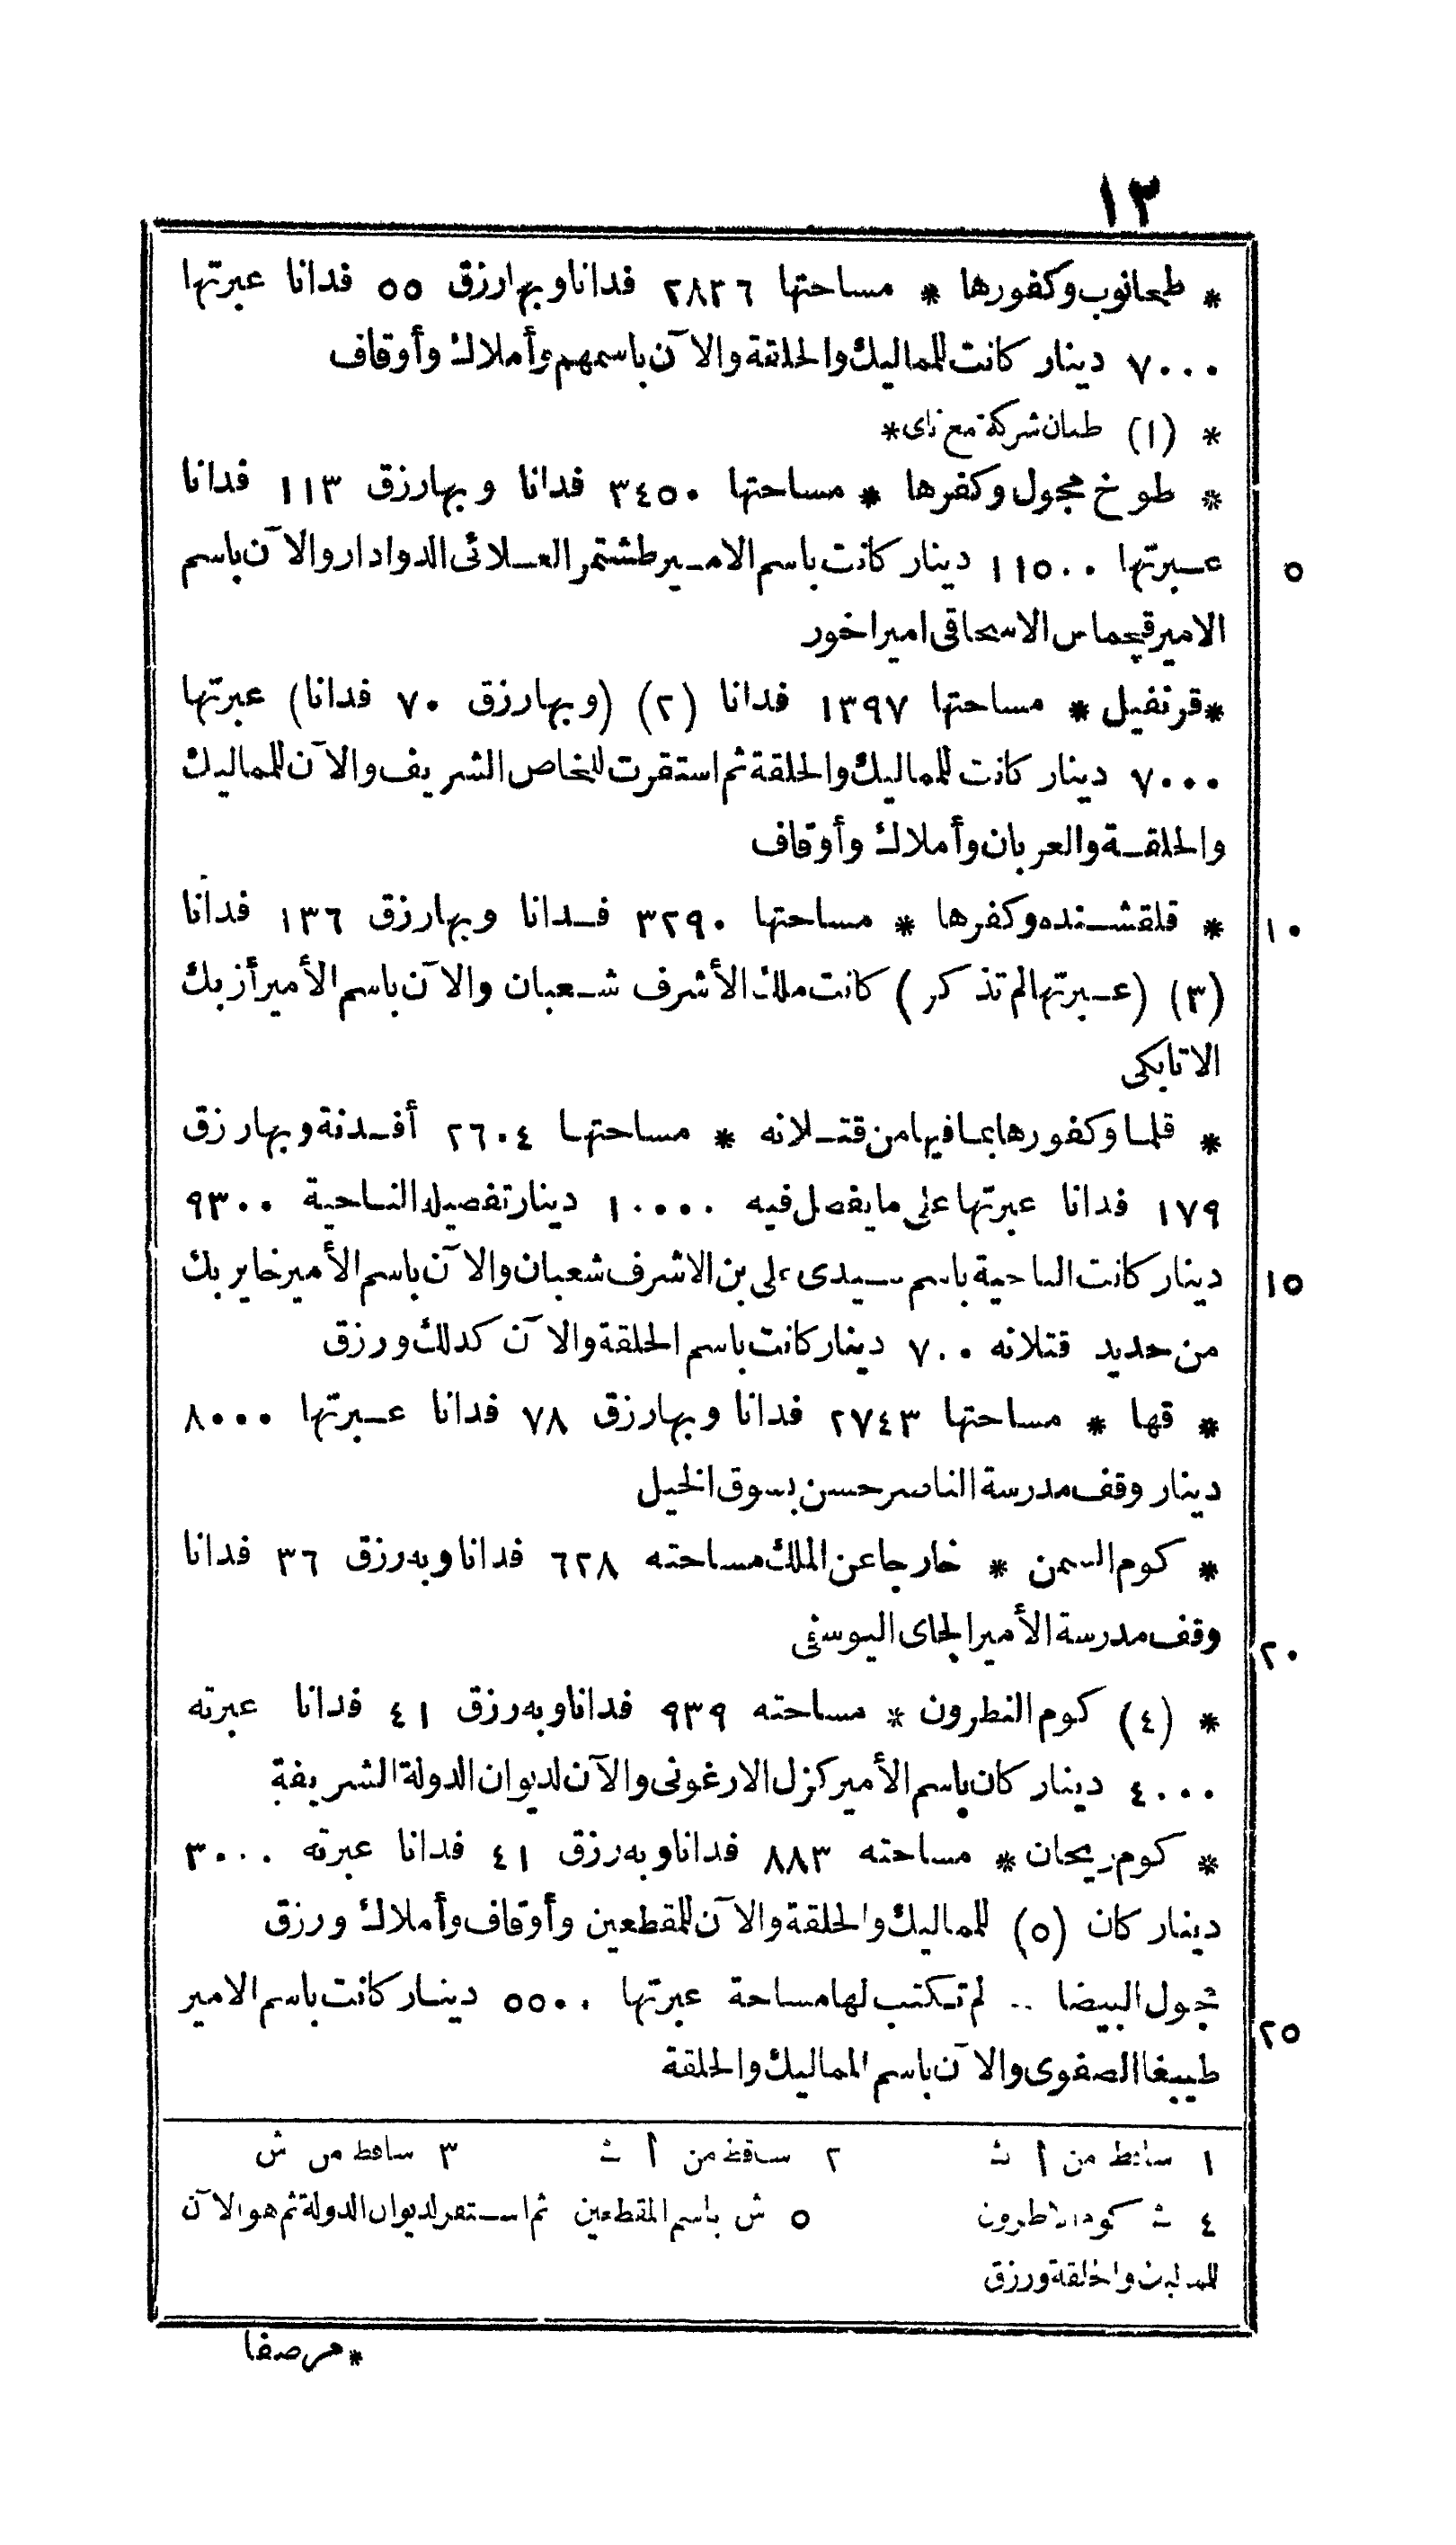 ١٣
* طحانوب وكفورها * مساحتها ٢٨٣٦ فدانا وبها رزق ٥٥ فدانا عبرتها
٧٠٠٠ دينار كانت للماليك والحلقة والآن باسمهم وأملاك وأوقاف
* (١) طنان شركة مع ناى *
* طوخ مجول وكفرها * مساحتها ٣٤٥٠ فدانا وبها رزق ١١٣ فدانا
عبرتها ١١٥٠٠ دينار كانت باسم الامير طشتمر العلائى الدوادار والآن باسم
٥
الامير قجماس الاسحاقى اميراخور
* قرنفيل * مساحتها ١٣٩٧ فدانا (٢) (وبها رزق ٧٠ فدانا) عبرتها
٧٠٠٠ دينار كانت للماليك والحلقة ثم استقرت للخاص الشريف والآن للماليك
والحلقة والعربان وأملاك وأوقاف
* قلقشنده وكفرها * مساحتها ٣٢٩٠ فدانا وبها رزق ١٣٦ فدانا
١٠
(٣) (عبرتها لم تذكر) كانت ملك الأشرف شعبان والآن باسم الأمير أزبك
الاتابكى
* قلما وكفورها بما فيها من قتلانه * مساحتها ٢٦٠٤ أفدنة وبها رزق
١٧٩ فدانا عبرتها على ما يفصل فيه ١٠٠٠٠ دينار تفصيله الناحية ٩٣٠٠
دينار كانت الناحية باسم سيدى على بن الاشرف شعبان والآن باسم الأمير خاير بك
١٥
من حديد قتلانه ٧٠٠ دينار كانت باسم الحلقة والآن كذلك ورزق
* قها * مساحتها ٢٧٤٣ فدانا وبها رزق ٧٨ فدانا عبرتها ٨٠٠٠
دينار وقف مدرسة الناصر حسن بسوق الخيل
* كوم السمن * خارجا عن الملك مساحته ٦٢٨ فدانا وبه رزق ٣٦ فدانا
وقف مدرسة الأمير الجاى اليوسفى
٢٠
* (٤) كوم النطرون * مساحته ٩٣٩ فدانا وبه رزق ٤١ فدانا عبرته
٤٠٠٠ دينار كان باسم الأمير كزل الارغونى والآن لديوان الدولة الشريفة
* كوم ريحان * مساحته ٨٨٣ فدانا وبه رزق ٤١ فدانا عبرته ٣٠٠٠
دينار كان (٥) للماليك والحلقة والآن للمقطعين وأوقاف وأملاك ورزق
مجول البيضا .. لم تكتب لها مساحة عبرتها ٥٥٠٠ دينار كانت باسم الامير
٢٥
طيبغا الصفوى والآن باسم المماليك والحلقة
١ ساقط من أ ث ٢ ساقط من أ ث ٣ ساقط من ش
٤ ث كوم الاطرون ٥ ش باسم المقطعين ثم استقر لديوان الدولة ثم هو الآن
للمماليك والحلقة ورزق
* مرصفا